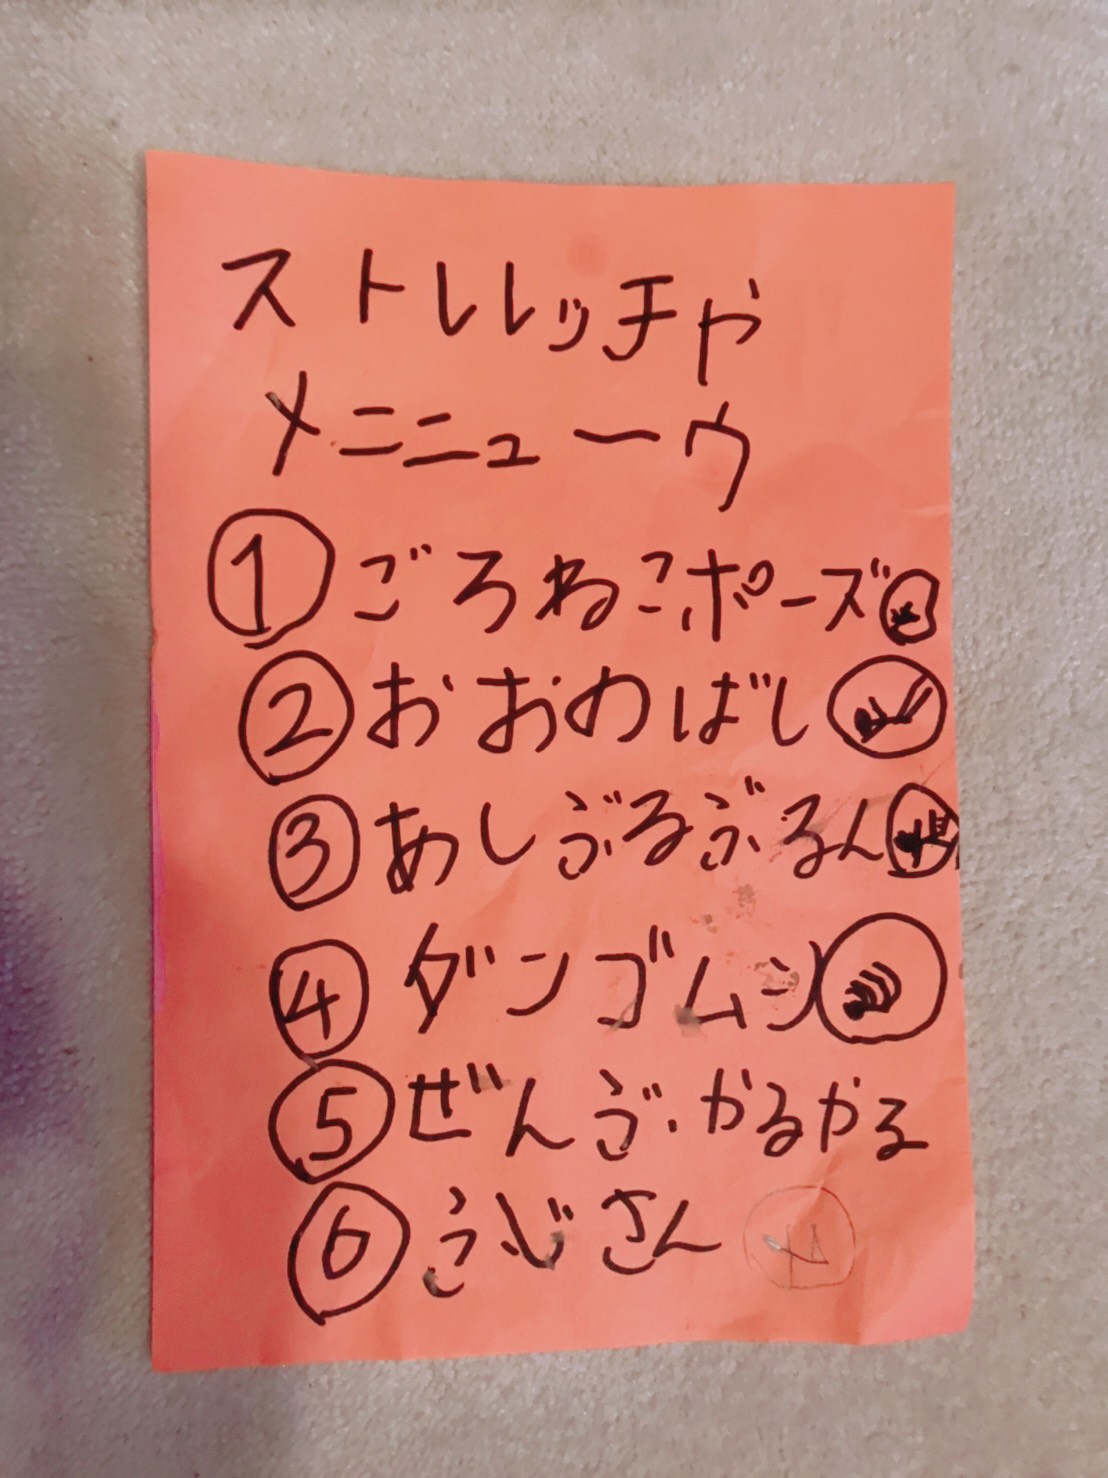 ストレレッチや
メニニューウ
① ごろねこポーズ
② おおのばし
③ あしぶるぶるん
④ ダンゴムシ
⑤ ぜんぶかるかる
⑥ ふじさん